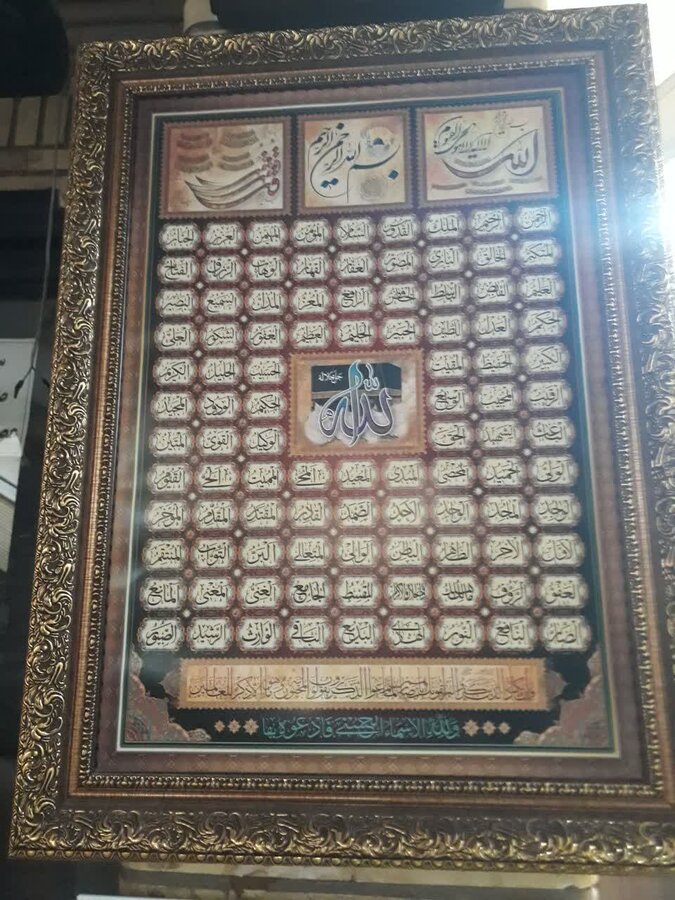 بسم الله الرحمن الرحيم
الرحمن الرحيم الملك القدوس السلام المؤمن المهيمن العزيز الجبار
المتكبر الخالق الباري المصور الغفار القهار الوهاب الرزاق الفتاح
العليم القابض الباسط الخافض الرافع المعز المذل السميع البصير
الحكم العدل اللطيف الخبير الحليم العظيم الغفور الشكور العلي
الكبير الحفيظ المقيت الحسيب الجليل الكريم
الرقيب المجيب الواسع الحكيم الودود المجيد
الباعث الشهيد الحق الوكيل القوي المتين
جل جلاله
الله
الولي الحميد المحصي المبدئ المعيد المحيي المميت الحي القيوم
الواجد الماجد الواحد الاحد الصمد القادر المقتدر المقدم المؤخر
الاول الاخر الظاهر الباطن الوالي المتعالي البر التواب المنتقم
العفو الرؤوف مالك الملك ذو الجلال والاكرام المقسط الجامع الغني المغني المانع
الضار النافع النور الهادي البديع الباقي الوارث الرشيد الصبور
ولله الاسماء الحسنى فادعوه بها